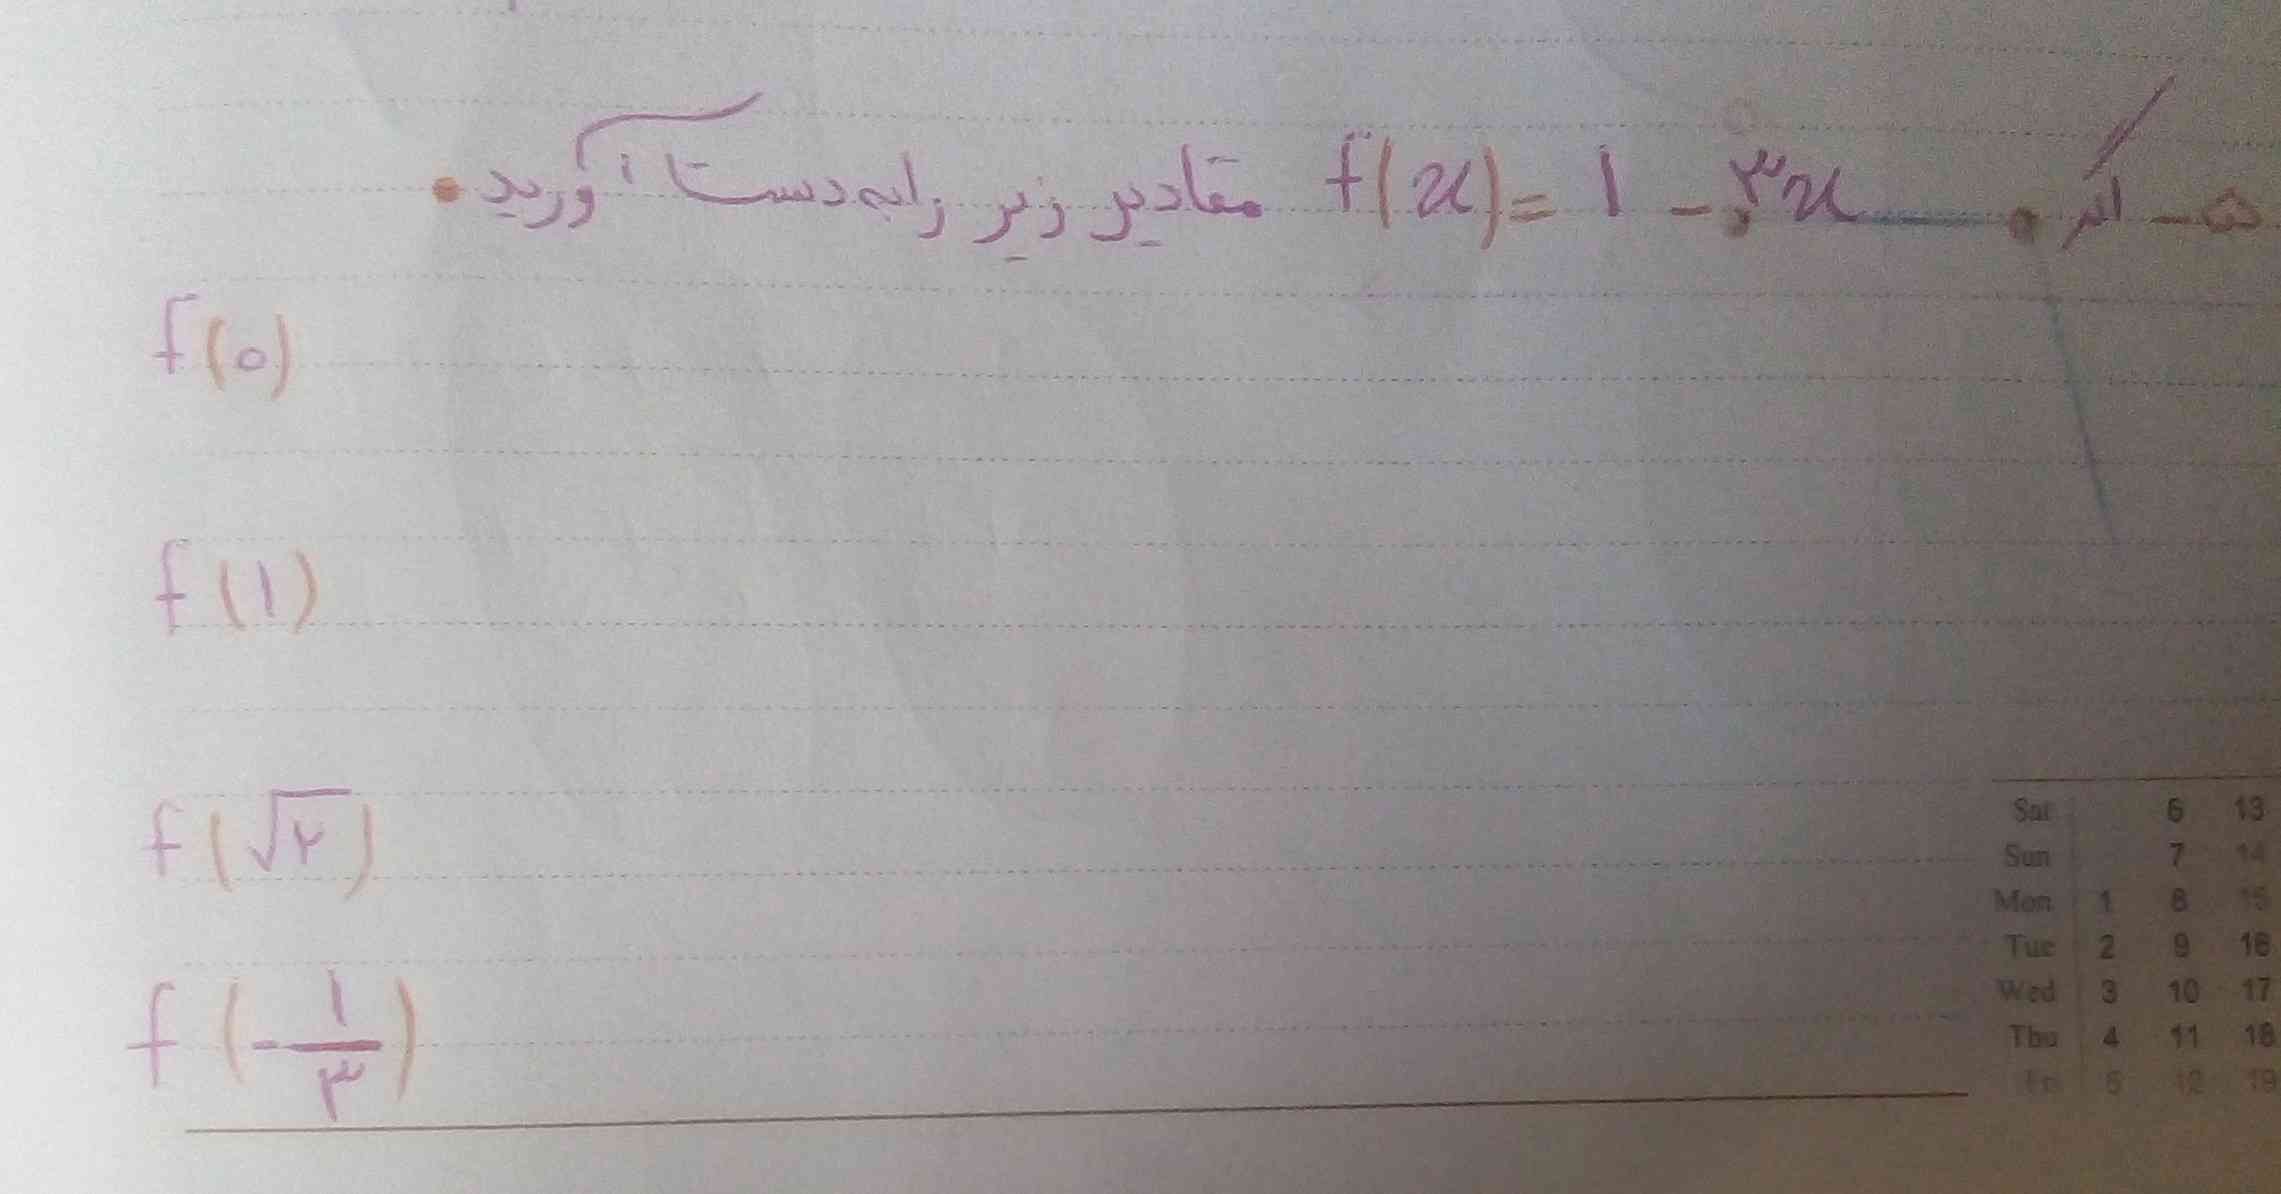 ث - اگر f(x) = ۱ - ۳x مقادیر زیر را به دست آورید.
f(۰)
f(۱)
f(√۲)
f(-۱/۳)
Sat 6 13
Sun 7 14
Mon 1 8 15
Tue 2 9 16
Wed 3 10 17
Thu 4 11 18
Fri 5 12 19